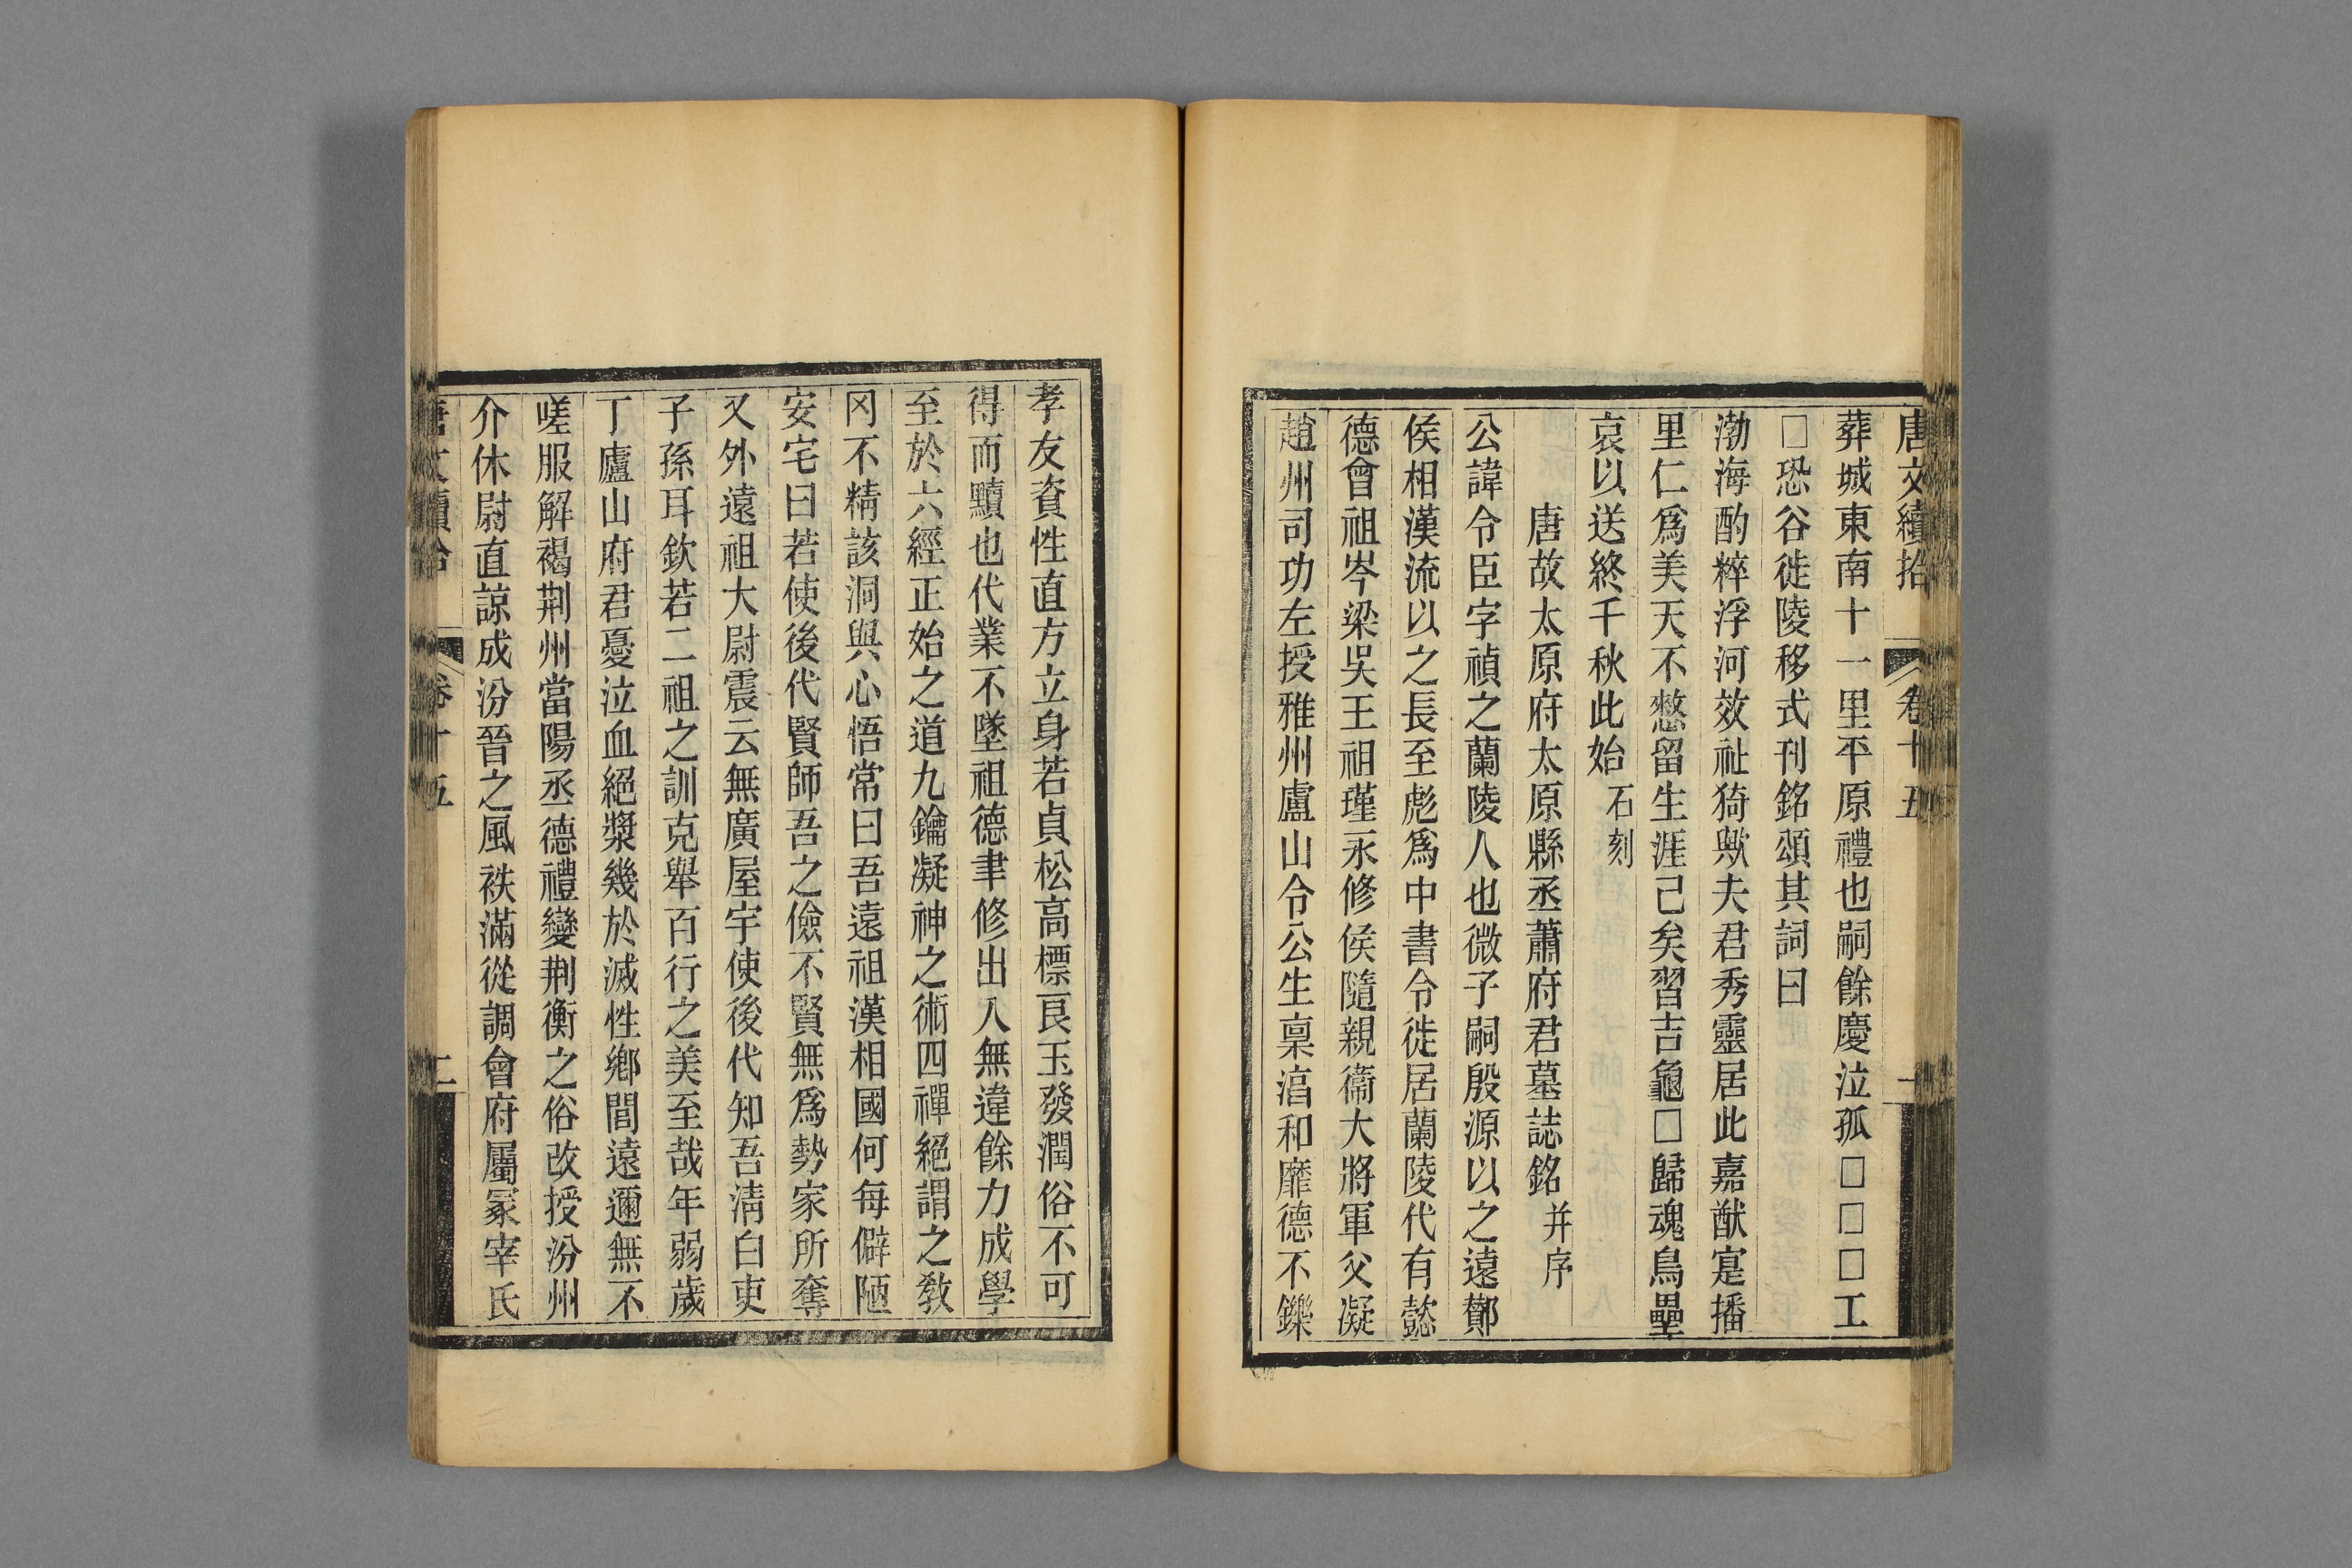 唐文續拾 卷十五 一
葬城東南十一里平原禮也嗣餘慶泣孤□□□工
□恐谷徙陵移式刊銘頌其詞曰
渤海酌粹浮河效祉猗歟夫君秀靈居此嘉猷寔播
里仁爲美天不憗留生涯己矣習吉龜□歸魂鳥壘
哀以送終千秋此始 石刻
唐故太原府太原縣丞蕭府君墓誌銘 并序
公諱令臣字禎之蘭陵人也微子嗣殷源以之遠酇
侯相漢流以之長至彪爲中書令徙居蘭陵代有懿
德曾祖岑梁吳王祖瑾永修侯隨親衞大將軍父凝
趙州司功左授雅州盧山令公生稟湻和靡德不鑠
孝友資性直方立身若貞松高標艮玉發潤俗不可
得而黷也代業不墜祖德聿修出入無違餘力成學
至於六經正始之道九鑰凝神之術四禪絕謂之敎
罔不精該洞與心悟常曰吾遠祖漢相國何每僻陋
安宅曰若使後代賢師吾之儉不賢無爲勢家所奪
又外遠祖大尉震云無廣屋宇使後代知吾淸白吏
子孫耳欽若二祖之訓克舉百行之美至哉年弱歲
丁廬山府君憂泣血絕漿幾於滅性鄉閭遠邇無不
嗟服解褐荆州當陽丞德禮變荆衡之俗改授汾州
介休尉直諒成汾晉之風袟滿從調會府屬冢宰氏
唐文續拾 卷十五 二